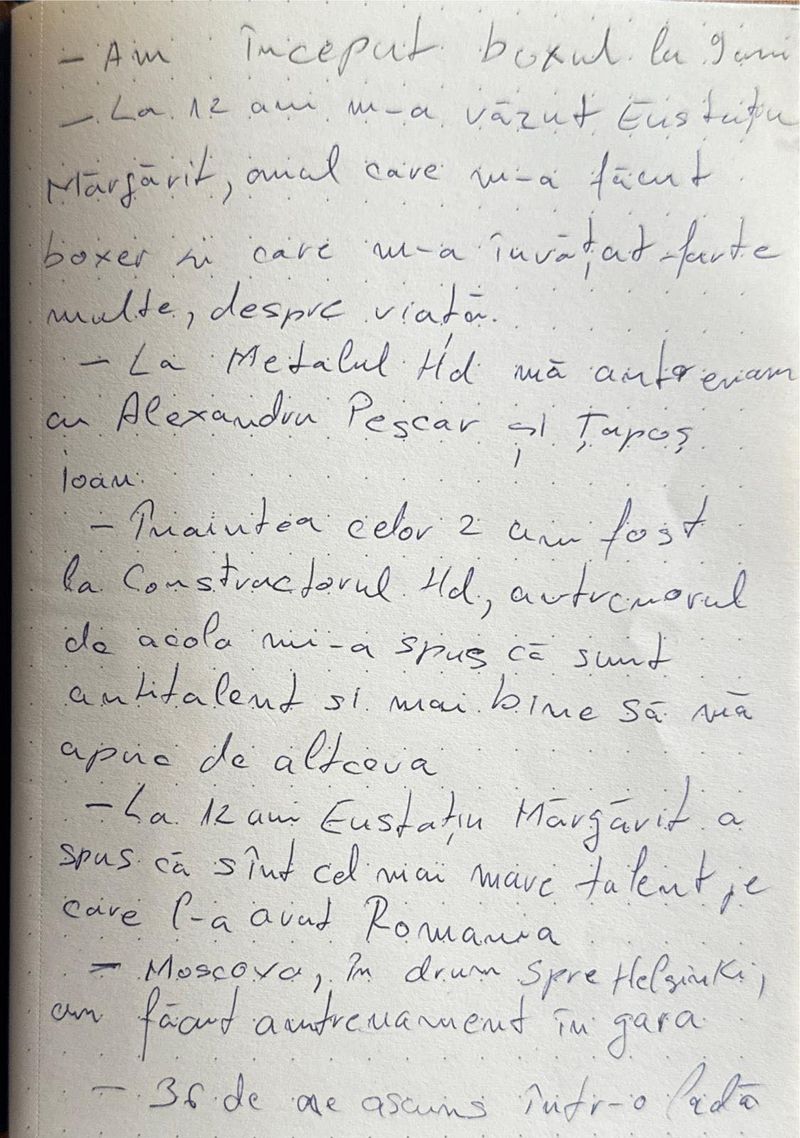 - Am început boxul la 9 ani
- La 12 ani m-a văzut Eustațiu
Mărgărit, omul care m-a făcut
boxer și care m-a învățat foarte
multe, despre viață.
- La Metalul Hd mă antrenam
cu Alexandru Peșcar și Țapoș
Ioan.
- Înaintea celor 2 am fost
la Constructorul Hd, antrenorul
de acolo mi-a spus că sunt
antitalent si mai bine să mă
apuc de altceva
- La 12 ani Eustațiu Mărgărit a
spus că sînt cel mai mare talent pe
care l-a avut Romania
- Moscova, în drum spre Helsinki,
am făcut antrenament în gara
- 36 de ore ascuns într-o ladă